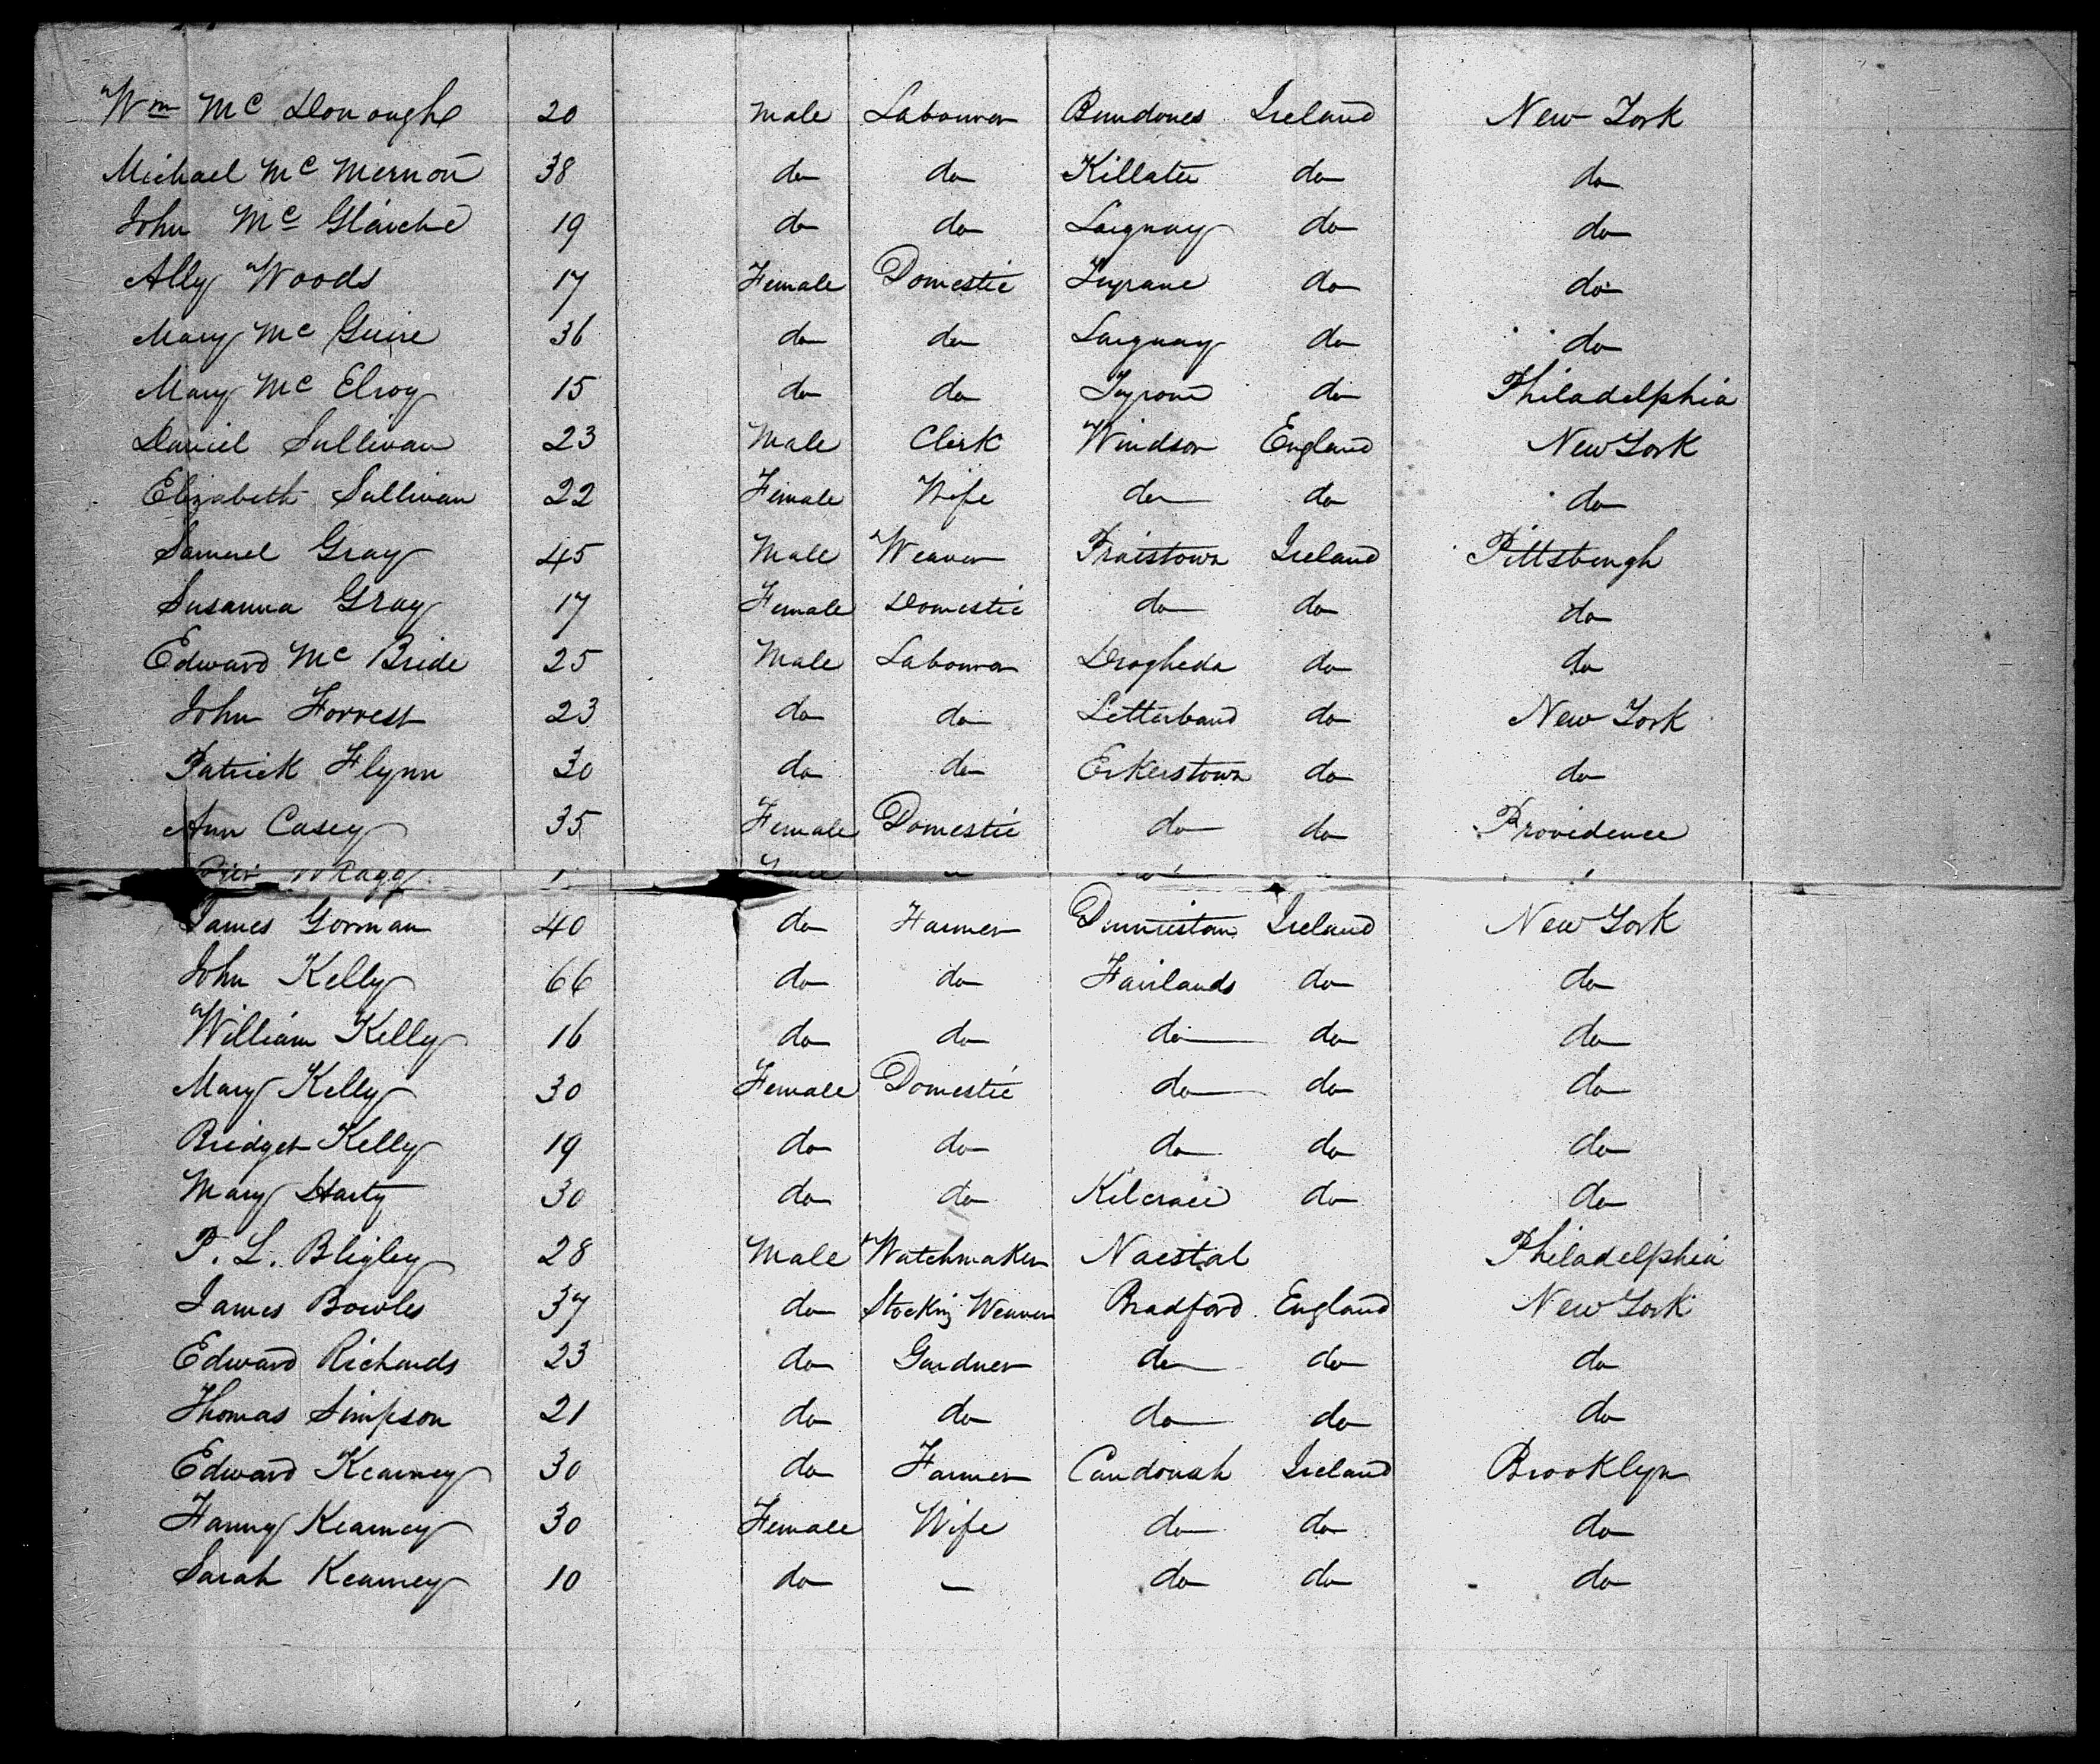 Wm Mc Donough 20 Male Labourer Bundones Ireland New York
Michael Mc Mernon 38 do do Killatee do do
John Mc Glaiche 19 do do Largnay do do
Ally Woods 17 Female Domestic Tyrane do do
Mary Mc Guire 36 do do Largnay do do
Mary Mc Elroy 15 do do Tyrone do Philadelphia
Daniel Sullivan 23 Male Clerk Windsor England New York
Elizabeth Sullivan 22 Female Wife do do do
Samuel Gray 45 Male Weaver Fraistown Ireland Pittsburgh
Susanna Gray 17 Female Domestic do do do
Edward Mc Bride 25 Male Labourer Drogheda do do
John Forrest 23 do do Letterband do New York
Patrick Flynn 30 do do Erkerstown do do
Ann Casey 35 Female Domestic do do Providence
James Gorman 40 do Farmer Ireland New York
John Kelly 66 do do Fairlands do do
William Kelly 16 do do do do do
Mary Kelly 30 Female Domestic do do do
Bridget Kelly 19 do do do do do
Mary Harty 30 do do Kilcraie do do
P. L. Bligley 28 Male Watchmaker Naestal Philadelphia
James Bowles 37 do Stocking Weaver Bradford England New York
Edward Richards 23 do Gardner do do do
Thomas Simpson 21 do do do do do
Edward Kearney 30 do Farmer Candonah Ireland Brooklyn
Fanny Kearney 30 Female Wife do do do
Sarah Kearney 10 do – do do do